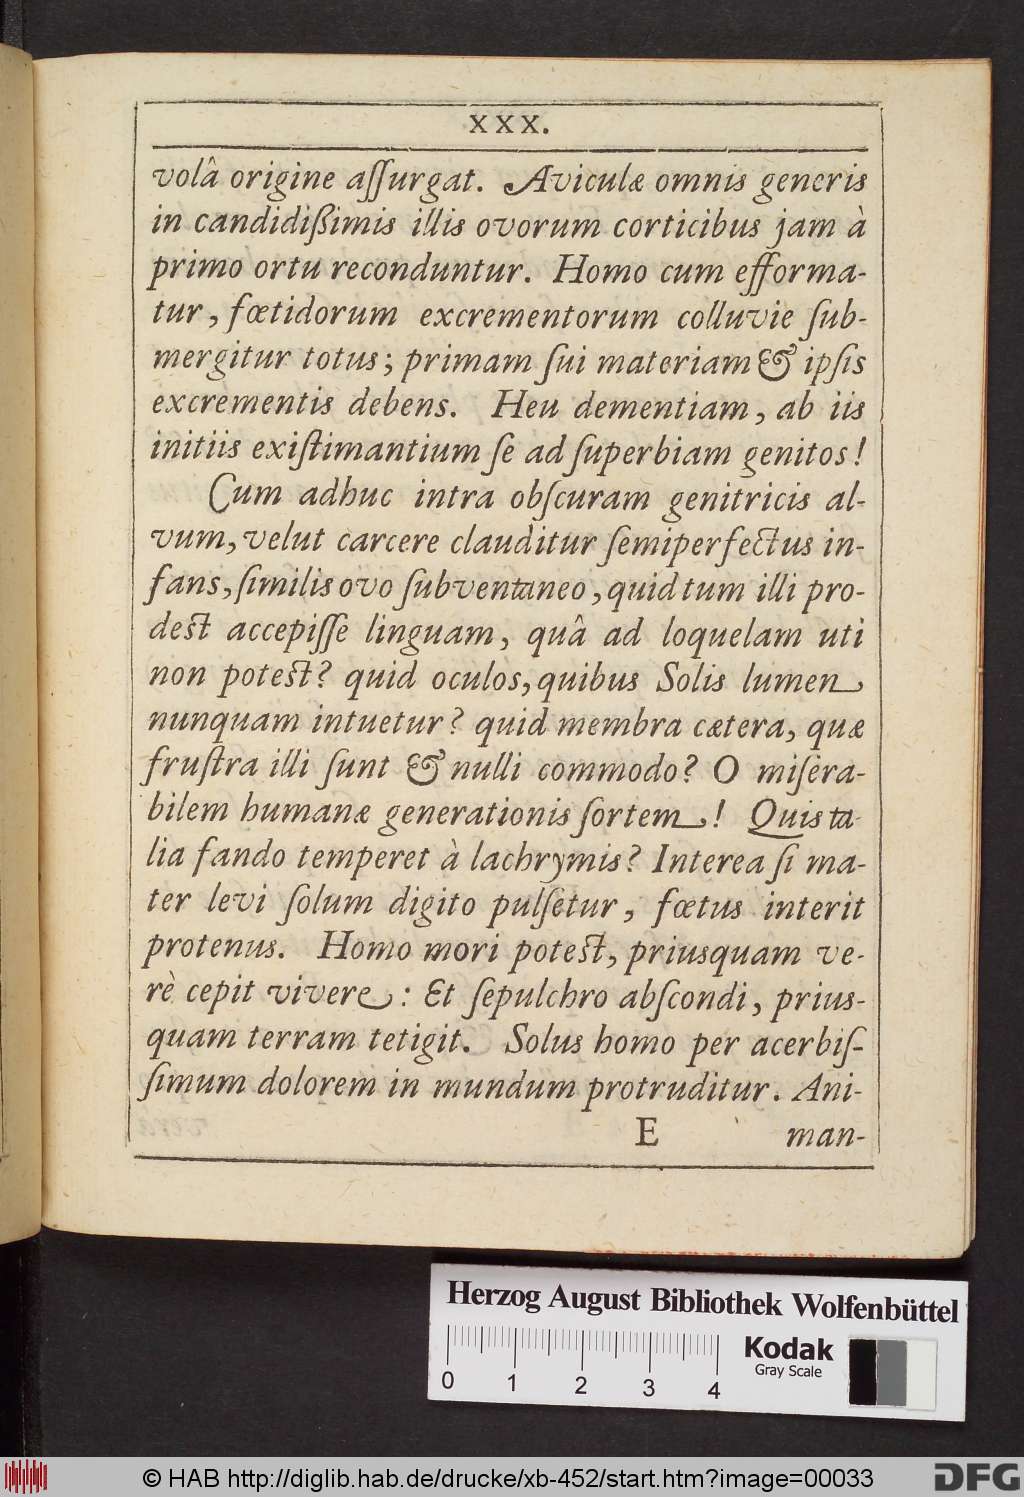 XXX.
volâ origine aſſurgat. Aviculæ omnis generis
in candidißimis illis ovorum corticibus jam à
primo ortu reconduntur. Homo cum efforma-
tur, fœtidorum excrementorum colluvie ſub-
mergitur totus; primam ſui materiam & ipſis
excrementis debens. Heu dementiam, ab iis
initiis exiſtimantium ſe ad ſuperbiam genitos!
Cum adhuc intra obſcuram genitricis al-
vum, velut carcere clauditur ſemiperfectus in-
fans, ſimilis ovo ſubventaneo, quid tum illi pro-
dest accepiſſe linguam, quâ ad loquelam uti
non potest? quid oculos, quibus Solis lumen
nunquam intuetur? quid membra cætera, quæ
fruſtra illi ſunt & nulli commodo? O miſera-
bilem humanæ generationis ſortem! Quis ta-
lia fando temperet à lachrymis? Interea ſi ma-
ter levi ſolum digito pulſetur, fœtus interit
protenus. Homo mori potest, priusquam ve-
rè cepit vivere: Et ſepulchro abſcondi, prius-
quam terram tetigit. Solus homo per acerbiſ-
ſimum dolorem in mundum protruditur. Ani-
E man-
Herzog August Bibliothek Wolfenbüttel
Kodak
Gray Scale
0 1 2 3 4
© HAB http://diglib.hab.de/drucke/xb-452/start.htm?image=00033
DFG